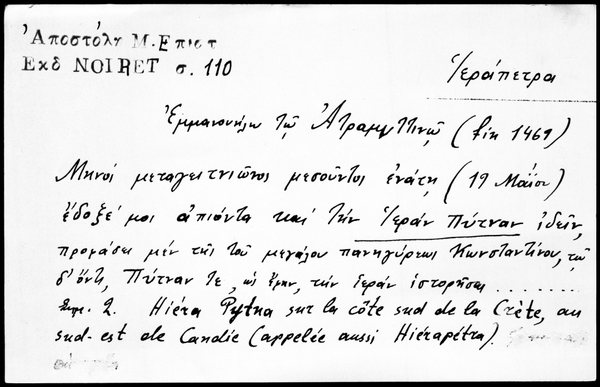 Ἀποστόλη Μ. Επιστ
Εκδ NOIRET σ. 110
Ἱεράπετρα
Ἐμμανουήλῳ τῷ Ἀτραμυττινῷ (fin 1469)
Μηνὸς μεταγειτνιῶνος μεσοῦντος ἐνάτῃ (19 Μαΐου)
ἔδοξέ μοι ἀπιόντα καὶ τὴν Ἱερὰν Πύτναν ἰδεῖν,
προφάσει μέν τῆς τοῦ μεγάλου πανηγύρεως Κωνσταντίνου, τῷ
δ' ὄντι, Πύτναν τε, ὡς ἔφην, τὴν ἱερὰν ἱστορῆσαι ........
Σημ. 2. Hiéra Pytna sur la côte sud de la Crète, au
sud-est de Candie (appelée aussi Hiérapétra).